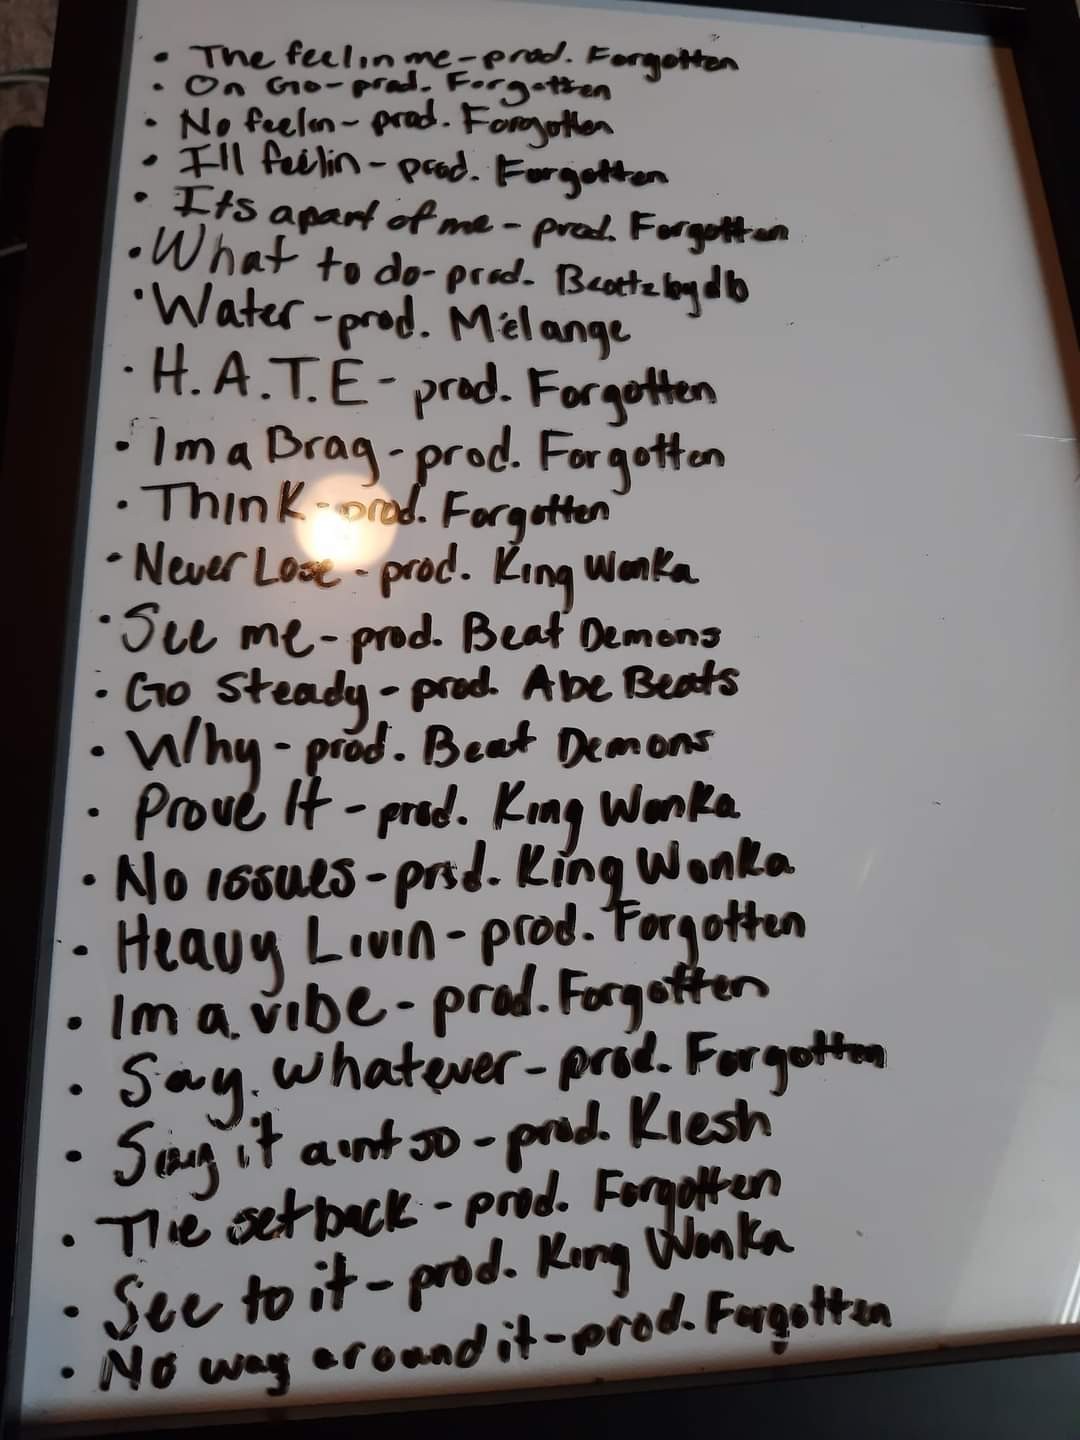 • The feelin me - prod. Forgotten
• On Go - prod. Forgotten
• No feelin - prod. Forgotten
• I'll feelin - prod. Forgotten
• Its apart of me - prod. Forgotten
• What to do - prod. Beattzbydb
• Water - prod. Mélange
• H.A.T.E - prod. Forgotten
• Im a Brag - prod. Forgotten
• Think - prod. Forgotten
• Never Lose - prod. King Wonka
• See me - prod. Beat Demons
• Go Steady - prod. Abe Beats
• Why - prod. Beat Demons
• Prove It - prod. King Wonka
• No issues - prod. King Wonka
• Heavy Livin - prod. Forgotten
• Im a vibe - prod. Forgotten
• Say whatever - prod. Forgotten
• Say it aint so - prod. Klesh
• The setback - prod. Forgotten
• See to it - prod. King Wonka
• No way around it - prod. Forgotten